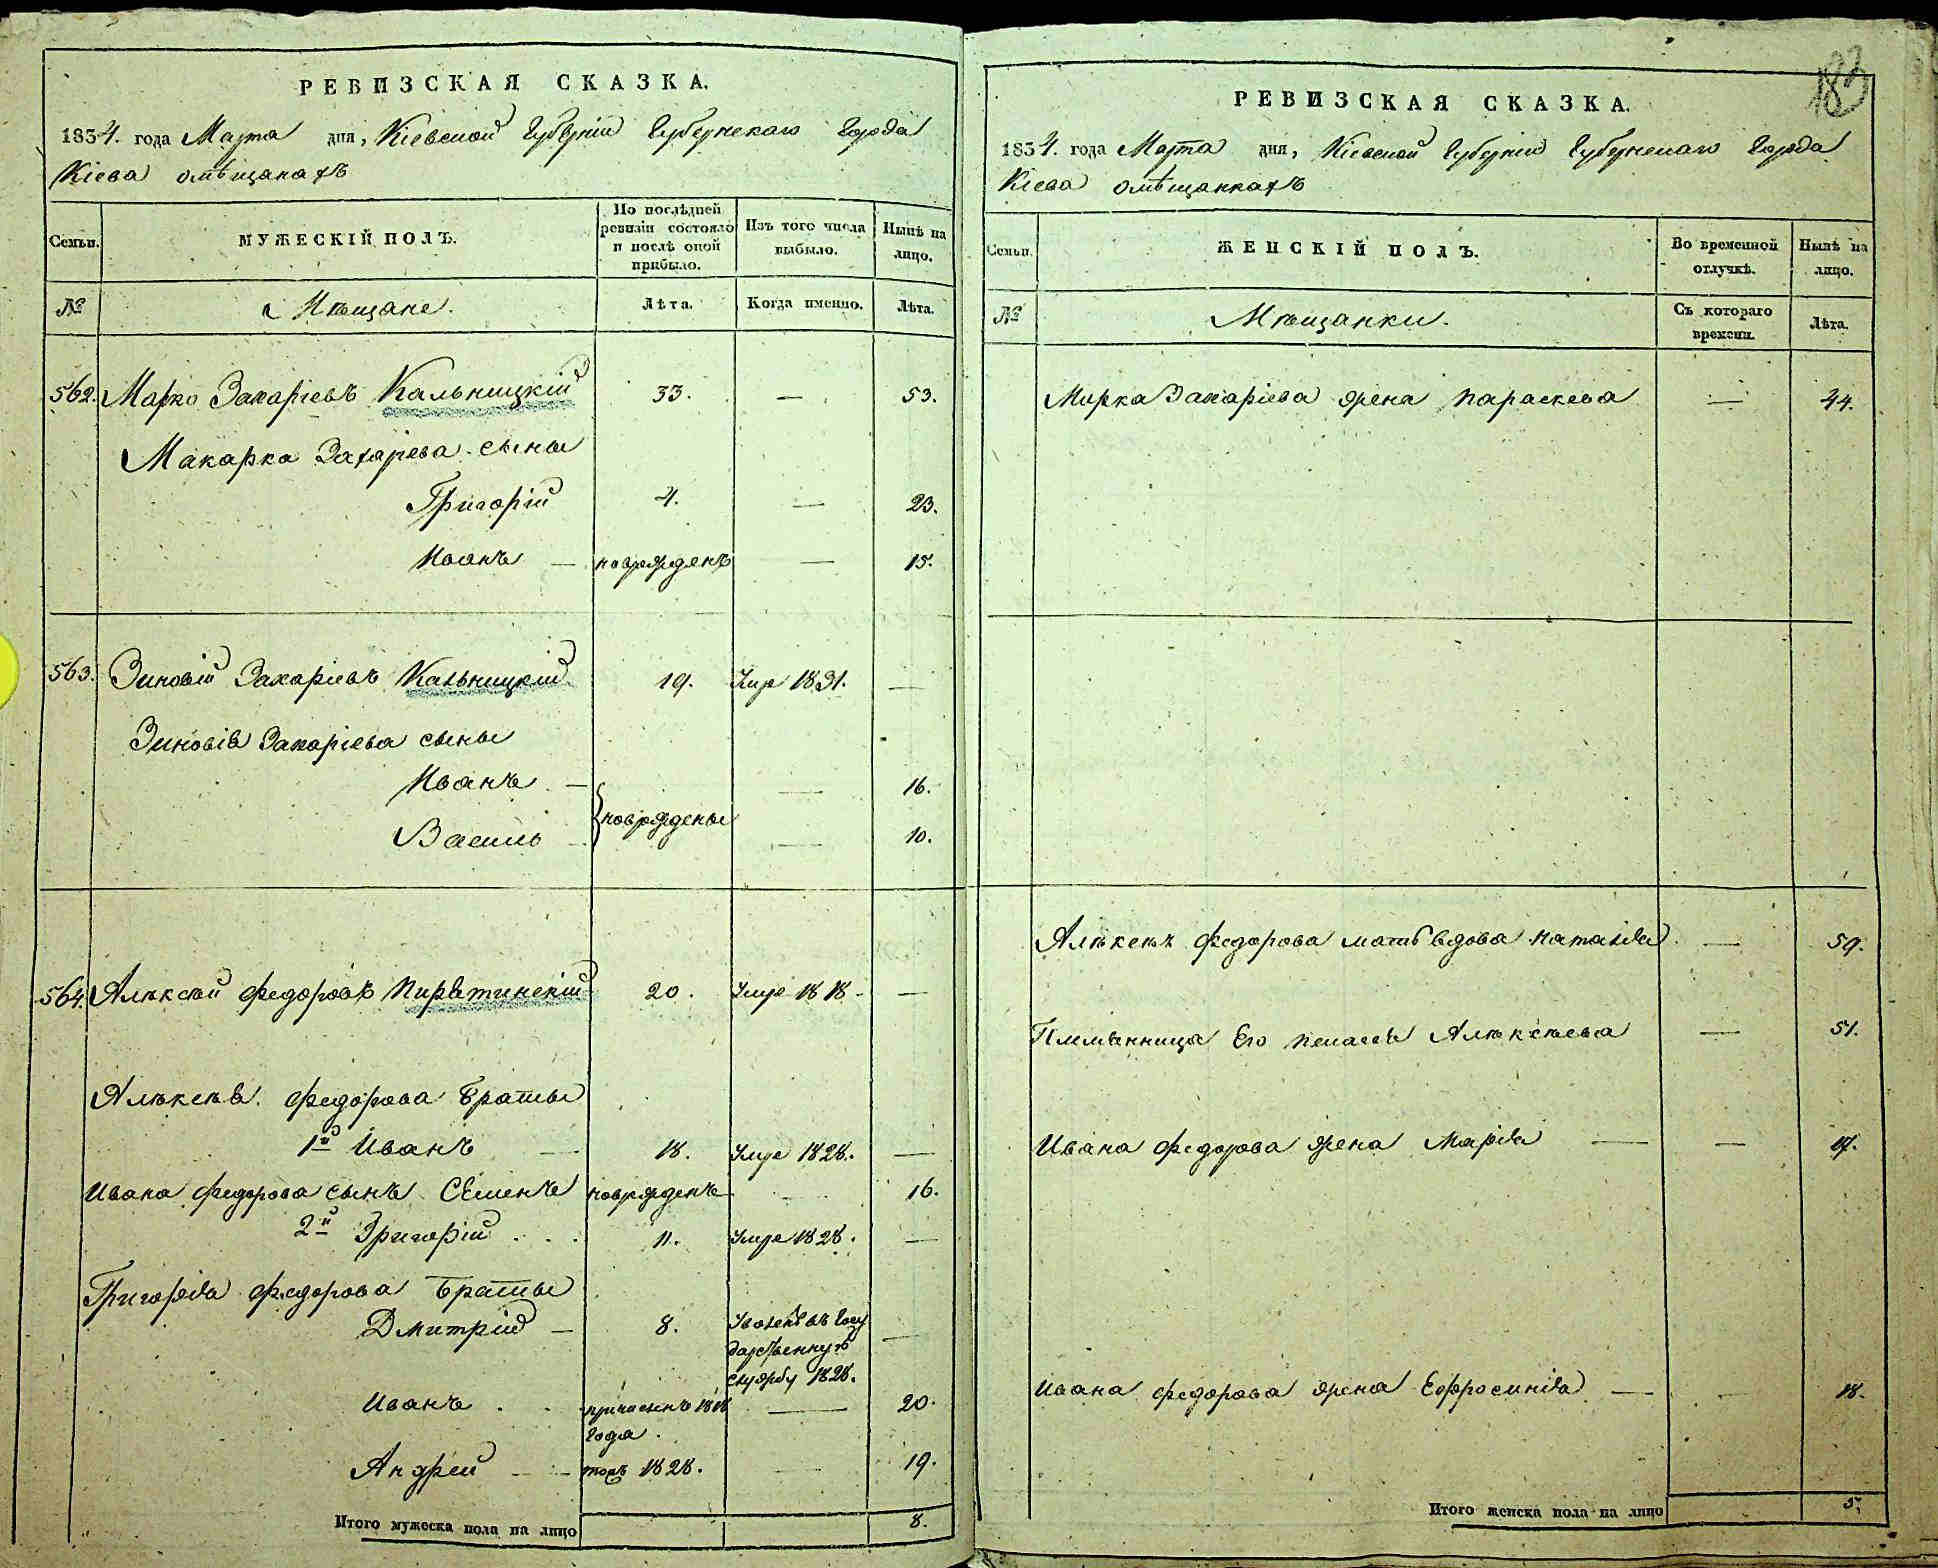 РЕВИЗСКАЯ СКАЗКА.
1834. года Марта дня, Кіевской Губерніи Губернскаго Города
Кіева омѣщанахъ
Семьи.
МУЖЕСКІЙ ПОЛЪ.
По послѣдней ревизіи состояло и послѣ оной прибыло.
Изъ того числа выбыло.
Нынѣ на лицо.
№
Мѣщане.
Лѣта.
Когда именно.
Лѣта.
562. Марко Захаріевъ Кальницкій 33. — 53.
Макарка Захаріева сыны
Григорій 4. — 23.
Иванъ — новрожденъ — 15.
563. Зиновій Захаріевъ Кальницкій 19. Умре 1831. —
Зиновія Захаріева сыны
Иванъ — новрождены — 16.
Василь — 10.
564. Алексѣй Федоровъ Пирятинскій 20. Умре 1818 —
Алѣксѣя Федорова Браты
1й Иванъ 18. Умре 1828. —
Ивана Федорова сынъ Семенъ новрожденъ — 16.
2й Григорій 11. Умре 1828. —
Григорія Федорова Браты
Дмитрій — 8. —
дарственную
службу 1828.
Иванъ причисленъ 1818 — 20.
года.
Андрей 1828. — 19.
Итого мужеска пола на лицо 8.
183
РЕВИЗСКАЯ СКАЗКА.
1834. года Марта дня, Кіевской Губерніи Губернскаго Города
Кіева омѣщанкахъ
Семьи.
ЖЕНСКІЙ ПОЛЪ.
Во временной отлучкѣ.
Нынѣ на лицо.
№
Мѣщанки.
Съ котораго времени.
Лѣта.
Марка Захаріева жена Параскева — 44.
Алѣксѣя Федорова мать вдова Наталія — 59.
Племѣнница Его Алѣксѣева — 51.
Ивана Федорова жена Марія — — 17.
Ивана Федорова жена Ефросинія — — 18.
Итого женска пола на лицо 5.